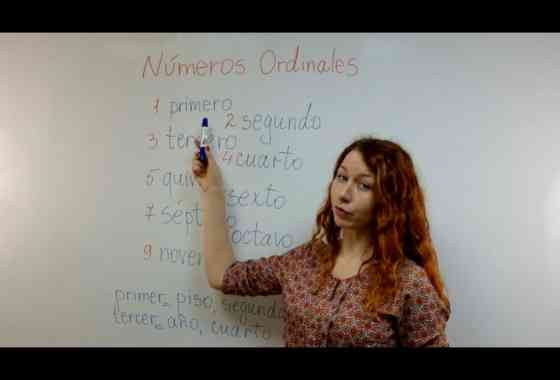 Números Ordinales
1 primero
2 segundo
3 tercero
4 cuarto
5
sexto
7
octavo
9
primer piso, segundo
tercer año, cuarto